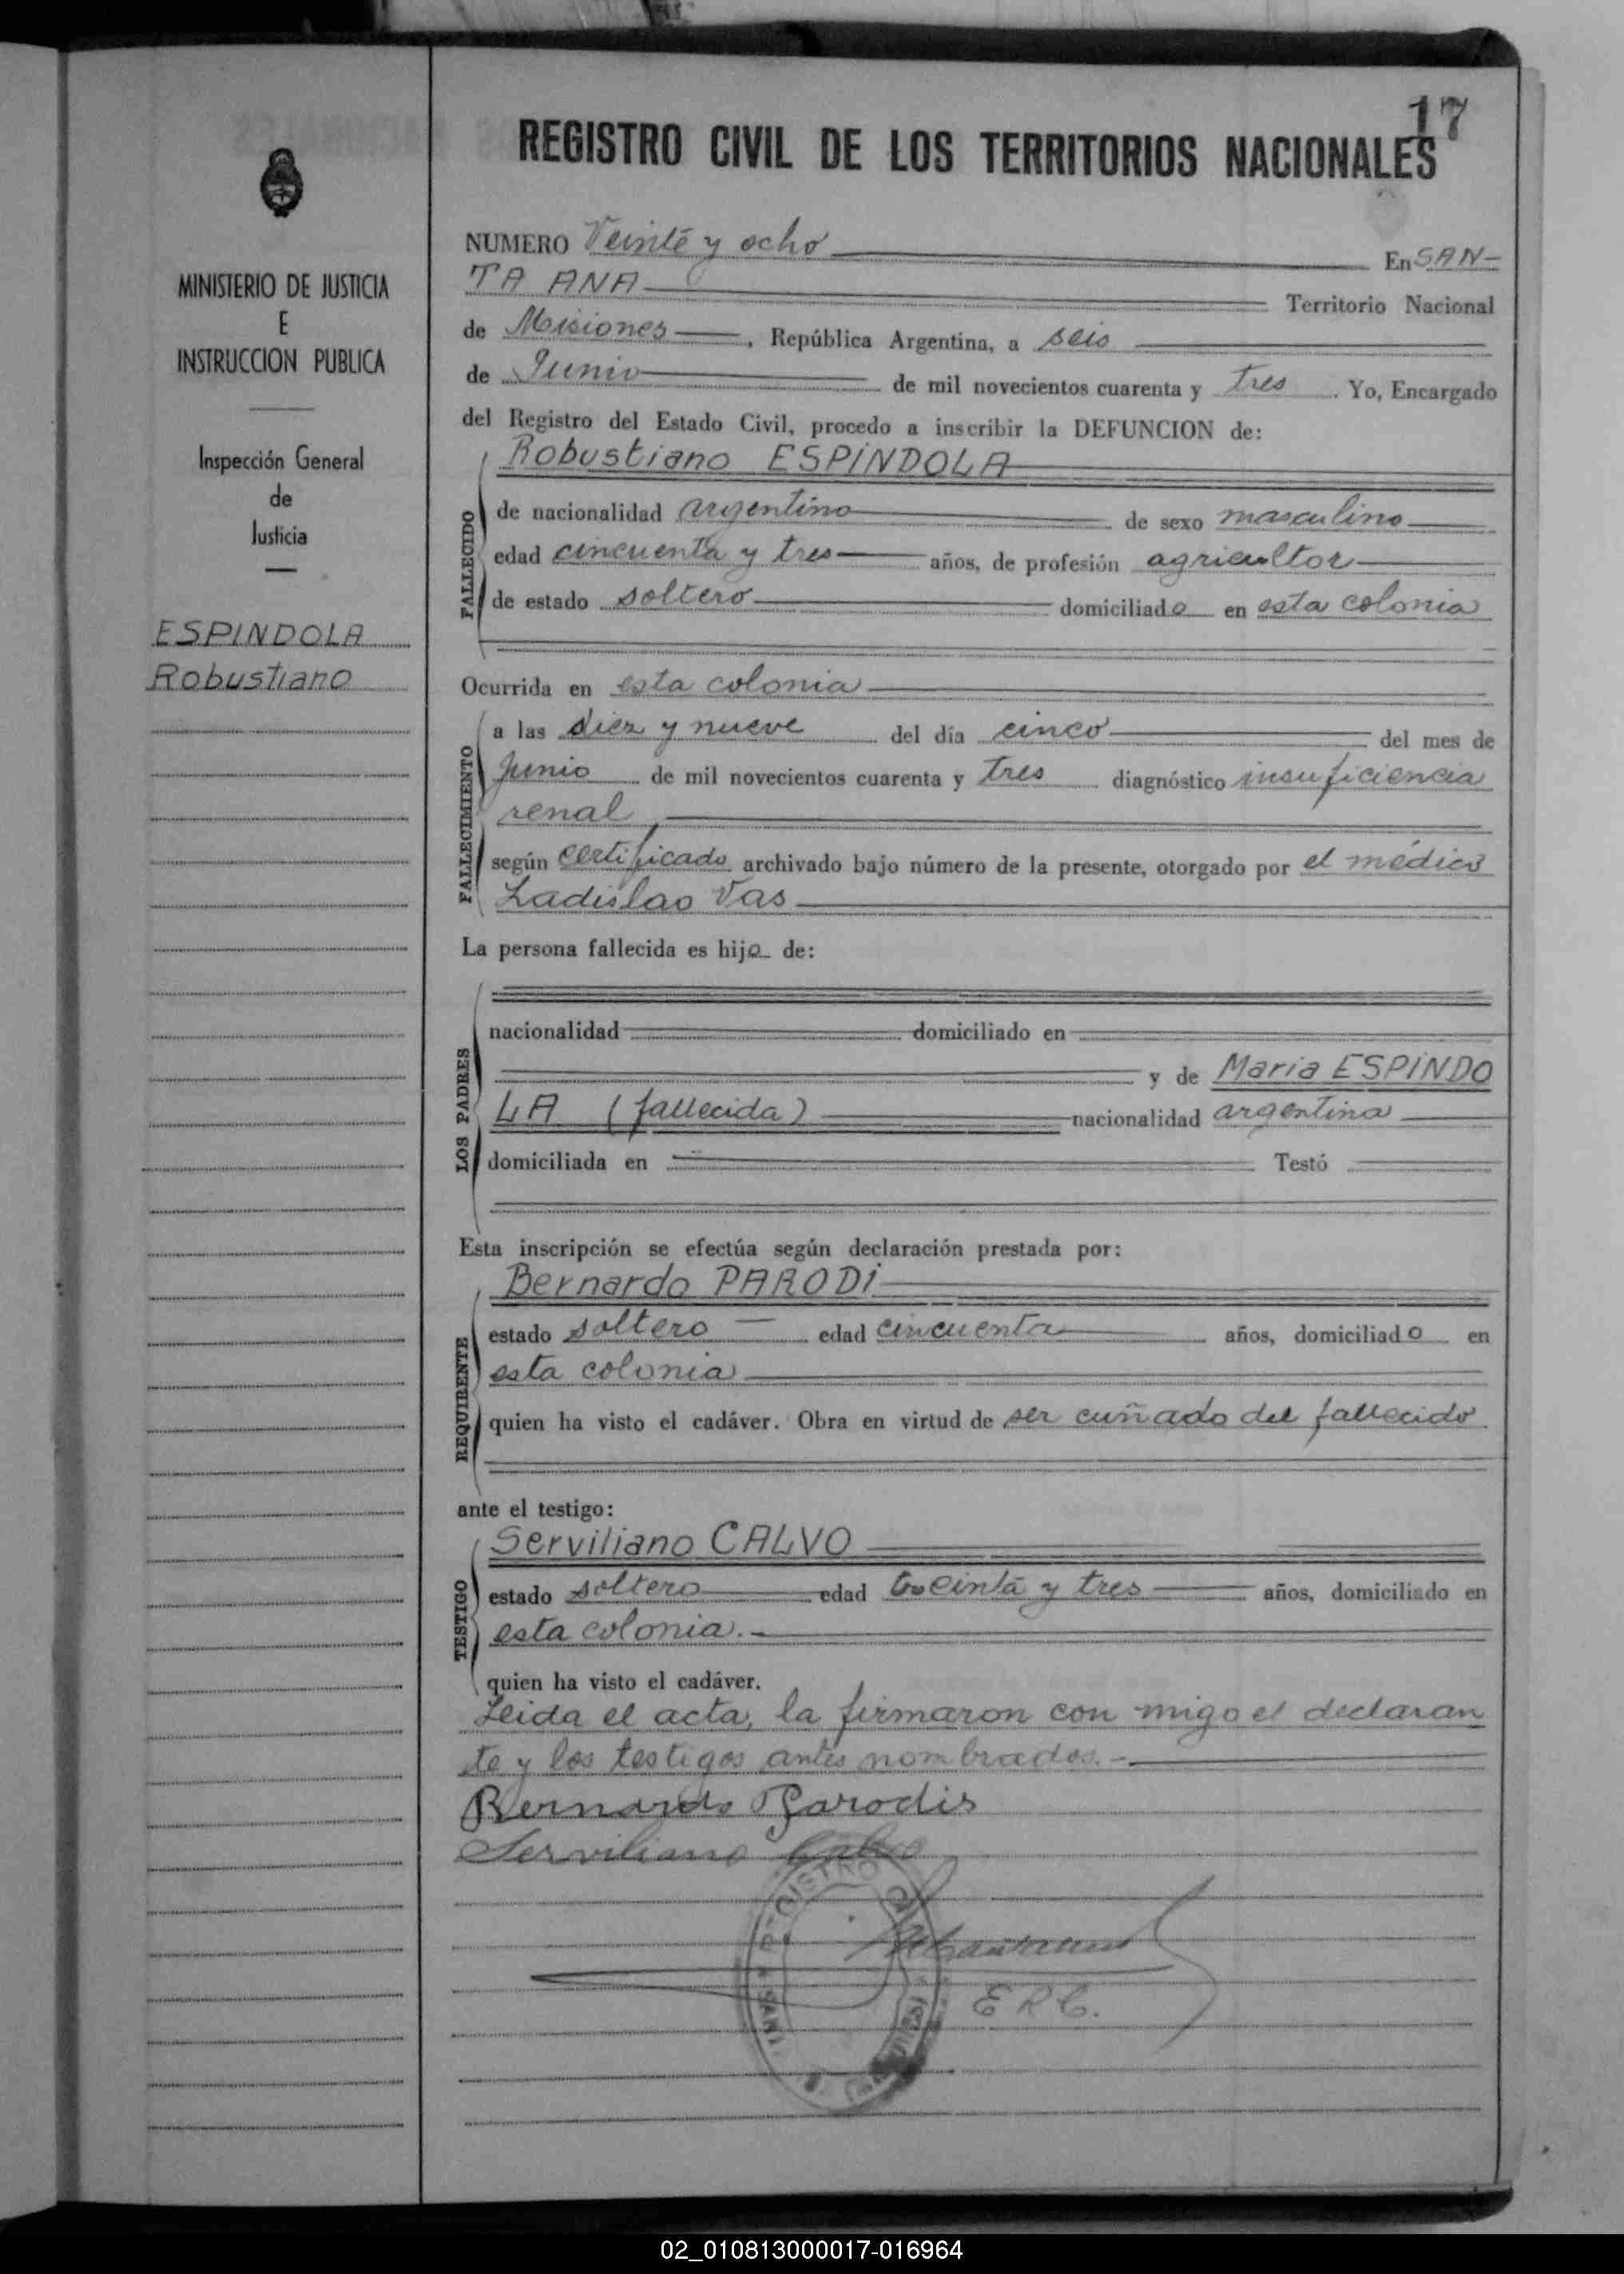 17
REGISTRO CIVIL DE LOS TERRITORIOS NACIONALES
MINISTERIO DE JUSTICIA
E
INSTRUCCION PUBLICA
Inspección General
de
Justicia
ESPINDOLA
Robustiano
NUMERO Veinte y ocho En SAN-
TA ANA Territorio Nacional
de Misiones, República Argentina, a seis
de Junio de mil novecientos cuarenta y tres. Yo, Encargado
del Registro del Estado Civil, procedo a inscribir la DEFUNCION de:
FALLECIDO
Robustiano ESPINDOLA
de nacionalidad argentino de sexo masculino
edad cincuenta y tres años, de profesión agricultor
de estado soltero domiciliado en esta colonia
Ocurrida en esta colonia
FALLECIMIENTO
a las diez y nueve del día cinco del mes de
Junio de mil novecientos cuarenta y tres diagnóstico insuficiencia
renal
según certificado archivado bajo número de la presente, otorgado por el médico
Ladislao Vas
La persona fallecida es hijo de:
LOS PADRES
nacionalidad domiciliado en
y de Maria ESPINDO
LA (fallecida) nacionalidad argentina
domiciliada en Testó
Esta inscripción se efectúa según declaración prestada por:
REQUIRENTE
Bernardo PARODI
estado soltero edad cincuenta años, domiciliado en
esta colonia
quien ha visto el cadáver. Obra en virtud de ser cuñado del fallecido
ante el testigo:
TESTIGO
Serviliano CALVO
estado soltero edad treinta y tres años, domiciliado en
esta colonia.-
quien ha visto el cadáver.
Leida el acta, la firmaron con migo el declaran
te y los testigos antes nombrados.-
Bernardo Parodis
Serviliano Calvo
E R C.
02_010813000017-016964